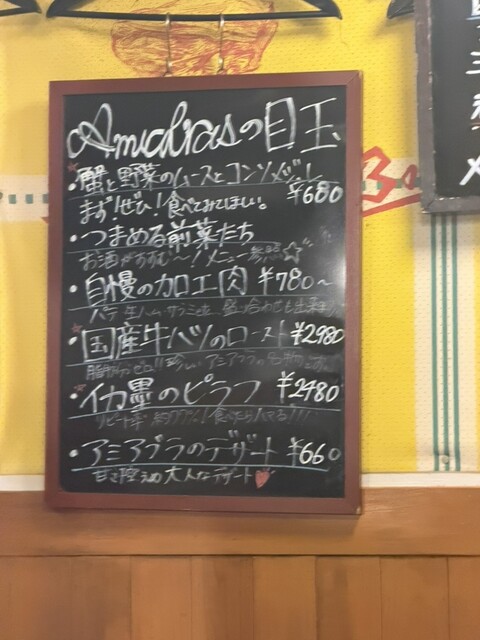 Amicibrasの目玉
・蟹と野菜のムースとコンソメジュレ
¥680
まず!ぜひ!食べてみてほしい。
・つまめる前菜たち
お酒がすすむ〜!メニュー参照☆
・自慢の加工肉 ¥780〜
パテ 生ハム サラミ 盛り合わせも出来
・国産牛ハツのロースト ¥2980
脂肪分ゼロ!! アミアブラの名物
・イカ墨のピラフ ¥2480
リピート率 約77%! 食べたらハマる!!!
・アミアブラのデザート ¥660
甘さ控えめ 大人なデザート